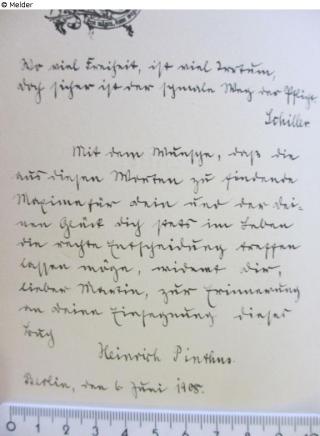 © Melder
Wo viel Freiheit, ist viel Irrtum,
doch sicher ist der schmale Weg der Pflicht.
Schiller
Mit dem Wunsche, daß die
aus diesen Worten zu findende
Maxime für Dein und der Dei-
nen Glück Dich stets im Leben
die rechte Entscheidung treffen
lassen möge, widmet Dir,
lieber Martin, zur Erinnerung
an Deine Einsegnung dieses
Buch
Heinrich Pinthus.
Berlin, den 6. Juni 1908.
0 1 2 3 4 5 6 7 8 9 10